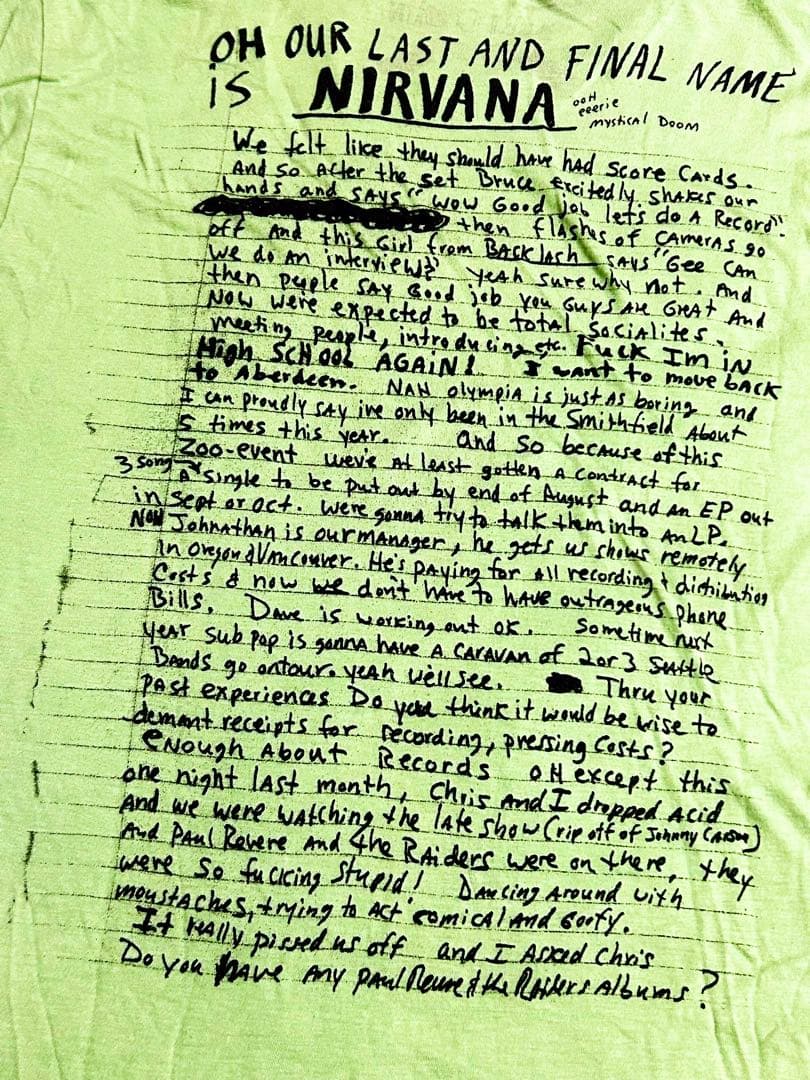 OH OUR LAST AND FINAL NAME
iS NIRVANA ooH eeerie mystical Doom
We felt like they should have had score cards.
And so After the set Bruce excitedly shakes our
hands and says "wow Good job lets do A Record".
then flashes of cameras go
off And this Girl from BACKlAsh says "Gee can
we do An interview?" yeah sure why not. And
then people say Good job you Guys are Great And
Now were expected to be total socialites.
meeting people, introducing etc. Fuck Im in
High SCHOOL AGAiN! I want to move back
to Aberdeen. NAH olympia is just as boring and
I can proudly say ive only been in the Smithfield About
5 times this year. and so because of this
Zoo-event weve At least gotten A contract for
3 song A single to be put out by end of August and an EP out
in sept or oct. were gonna try to talk them into An LP.
Now Johnathan is our manager, he gets us shows remotely
in oregon & Vancouver. He's paying for all recording & distribution
Costs & now we don't have to have outrageous phone
Bills. Dave is working out ok. Sometime next
year sub pop is gonna have A CARAVAN of 2 or 3 Seattle
Bands go on tour. yeah we'll see. Thru your
past experiences Do you think it would be wise to
demant receipts for recording, pressing costs?
enough About Records oH except this
one night last month, Chris And I dropped Acid
And we were watching the late show (rip off of Johnny Carson)
And Paul Revere and the RAiders were on there, they
were so fucking stupid! Dancing Around with
moustaches, trying to act comical and Goofy.
It really pissed us off and I Asked Chris
Do you have Any paul Revere & the Raiders Albums?